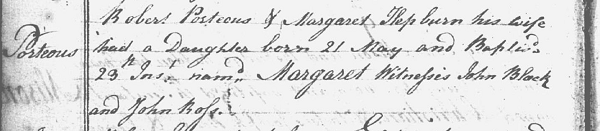 Robert Porteous & Margaret Hepburn his wife
Porteous had a Daughter born 21 May and Baptizd.
23d Inst. namd. Margaret Witnesses John Black
and John Ross.